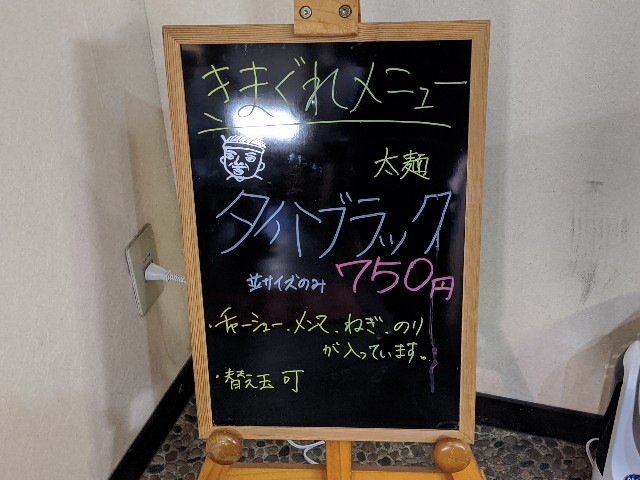 きまぐれメニュー
太麺
タイ卜ブラック
並サイズのみ 750円
・チャーシュー、メンマ、ねぎ、のり
が入っています。
・替え玉 可